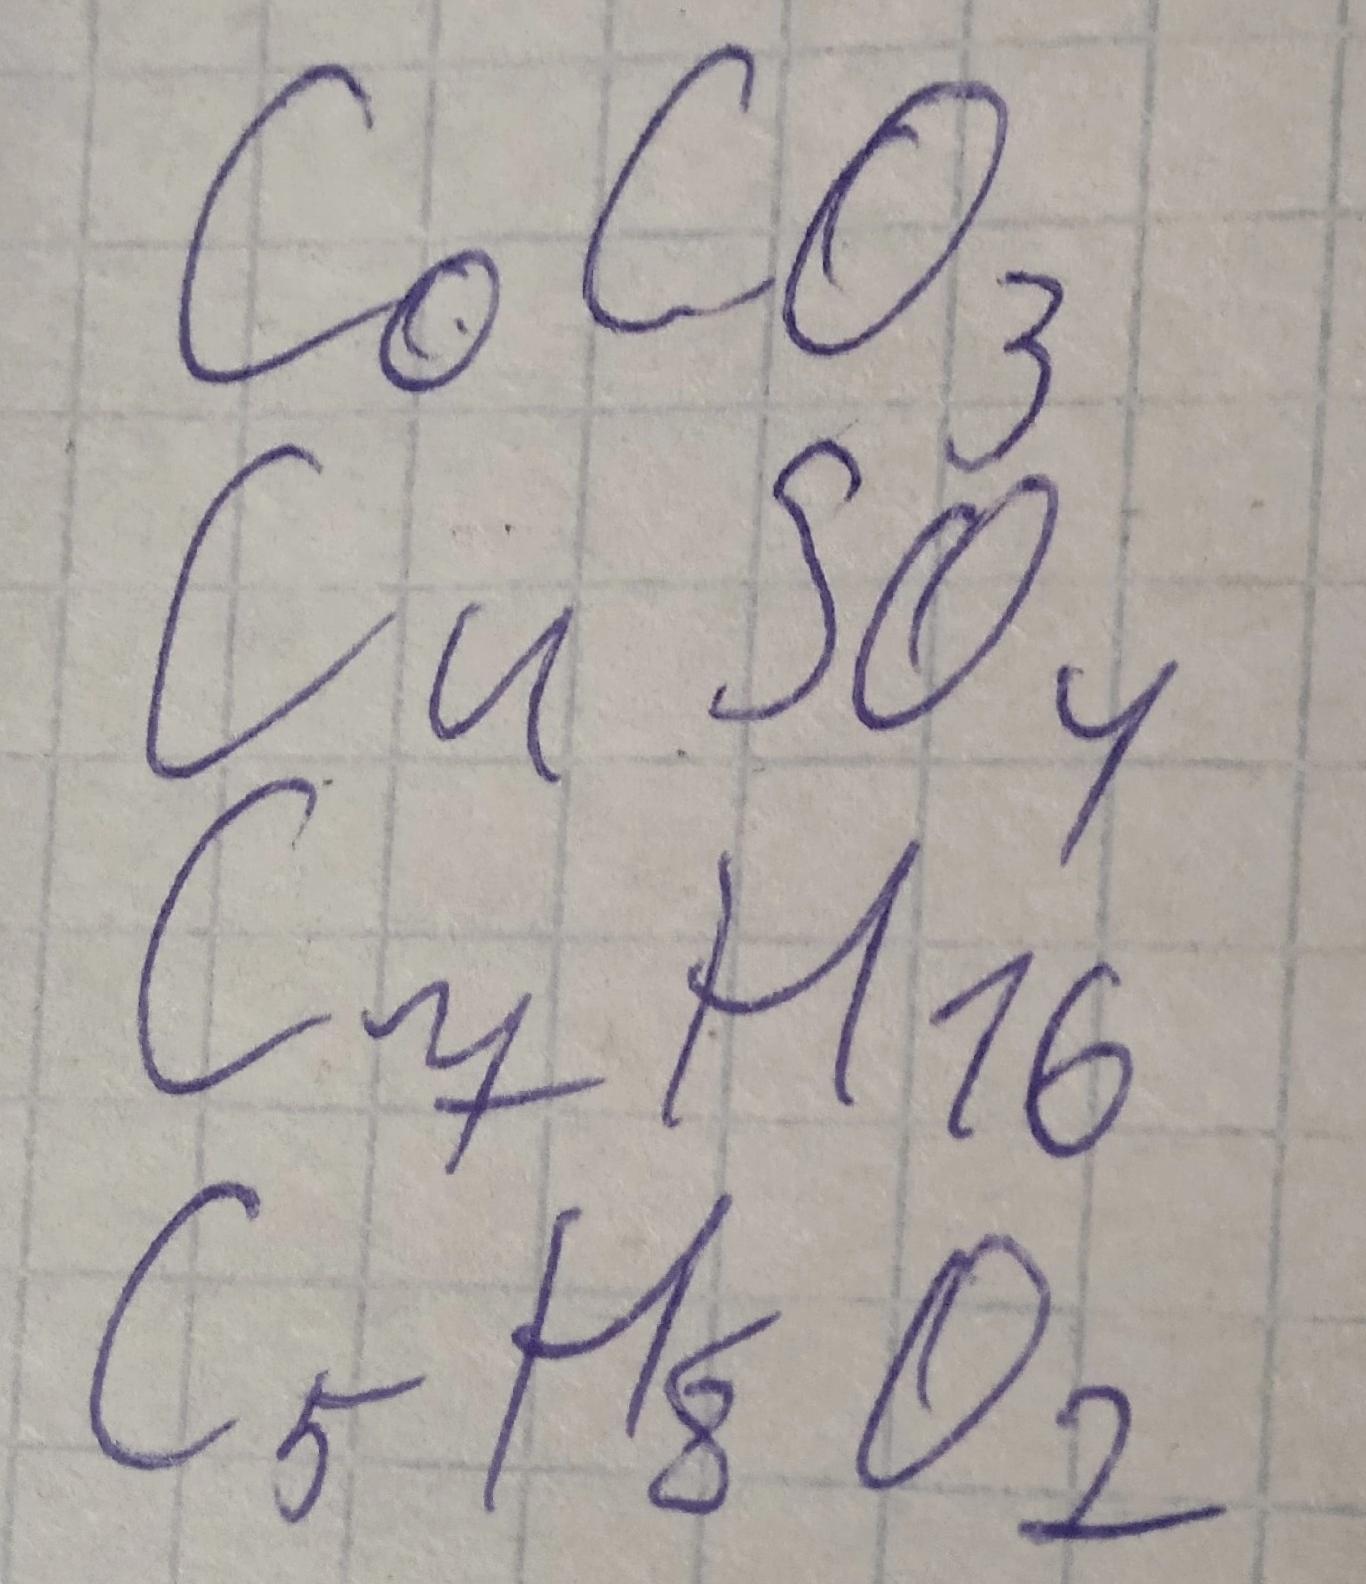 CoCO₃
CuSO₄
C₇H₁₆
C₅H₈O₂